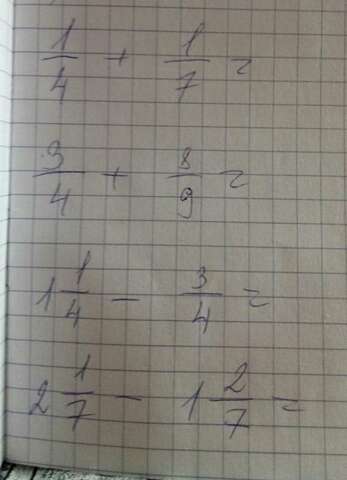 1/4 + 1/7 =
3/4 + 8/9 =
1 1/4 - 3/4 =
2 1/7 - 1 2/7 =